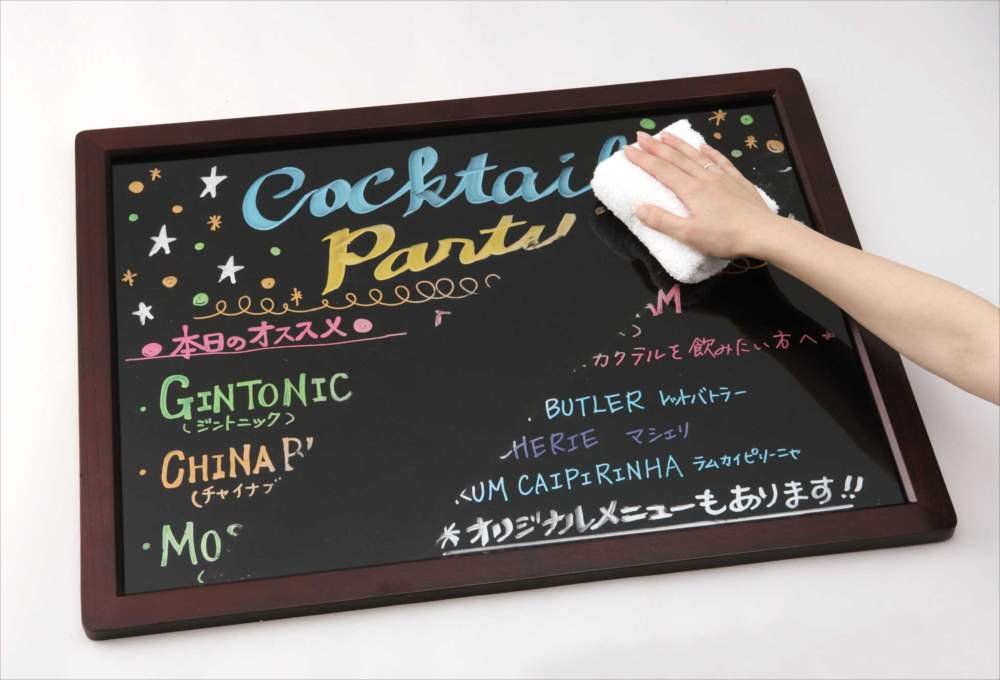 Cocktail
Party
本日のオススメ
M
カクテルを飲みたい方へ
・GINTONIC
(ジントニック)
BUTLER レットバトラー
・CHINA B
(チャイナブ
HERIE マシェリ
UM CAIPIRINHA ラムカイピリーニャ
・MOS
(
*オリジナルメニューもあります!!